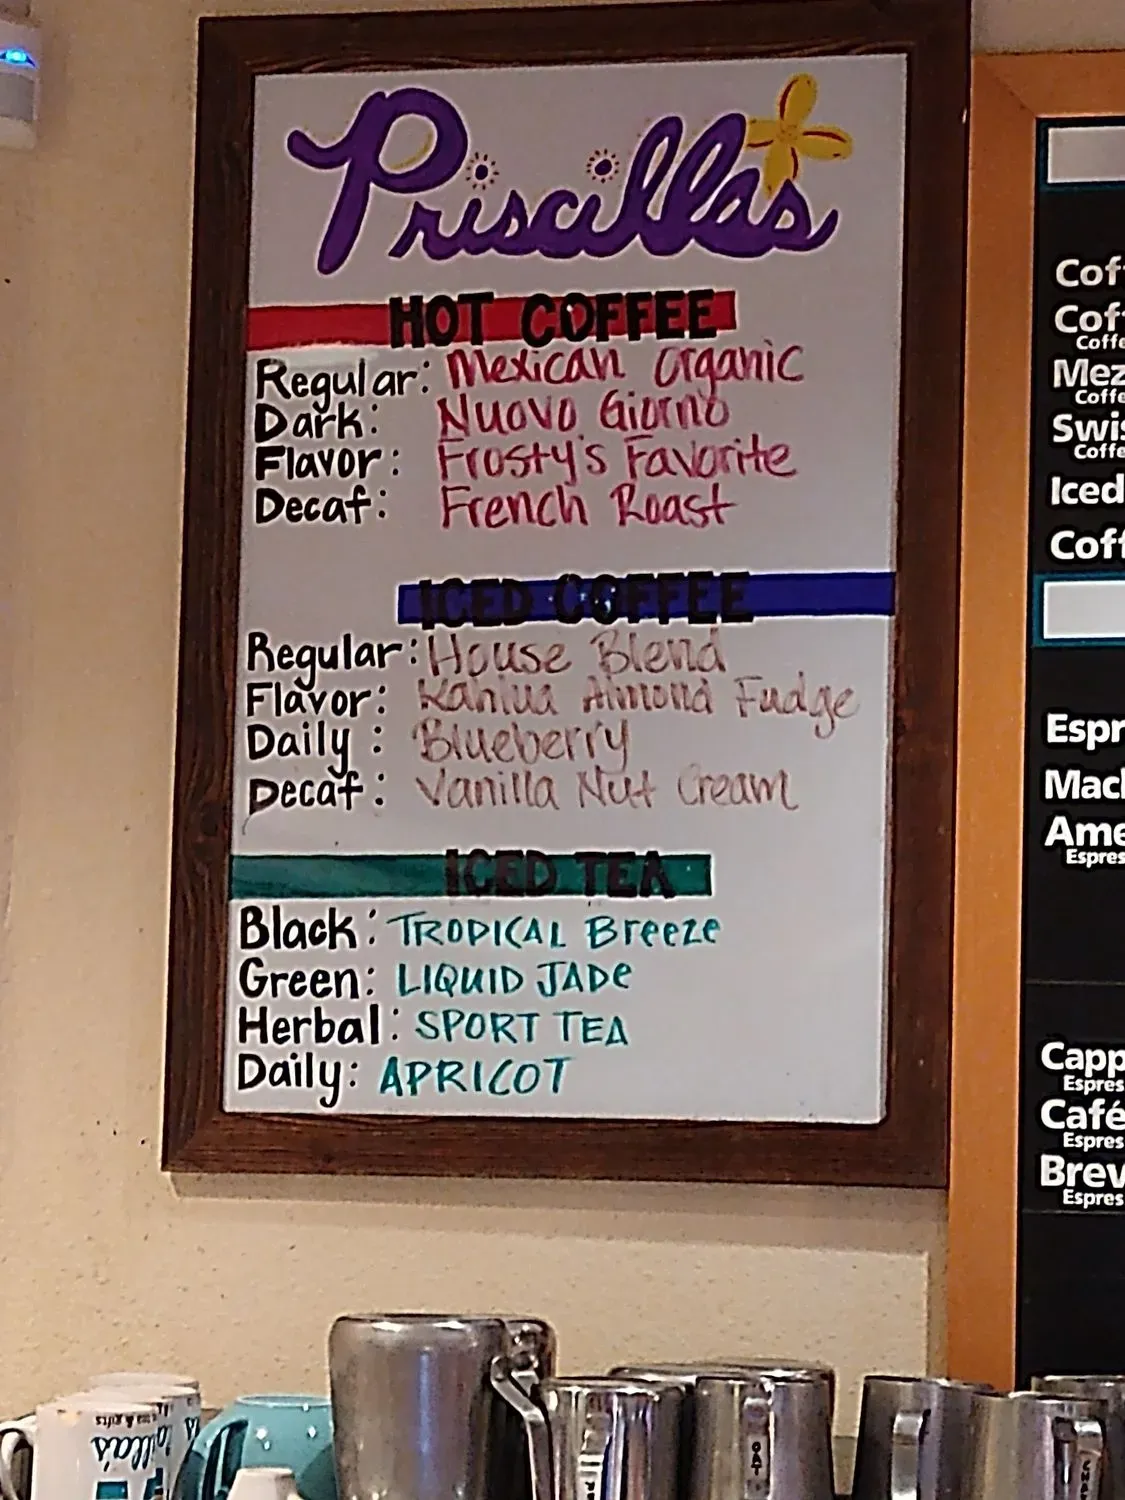 Priscilla's
HOT COFFEE
Regular: Mexican Organic
Dark: Nuovo Giorno
Flavor: Frosty's Favorite
Decaf: French Roast
ICED COFFEE
Regular: House Blend
Flavor: Kahlua Almond Fudge
Daily: Blueberry
Decaf: Vanilla Nut Cream
ICED TEA
Black: TROPICAL Breeze
Green: LIQUID JADe
Herbal: SPORT TEA
Daily: APRICOT
Coff
Coff
Coffe
Mez
Coffe
Swis
Coffe
Iced
Coff
Espr
Mac
Ame
Espres
Capp
Espres
Café
Espres
Brev
Espres
tea & gifts
OAT